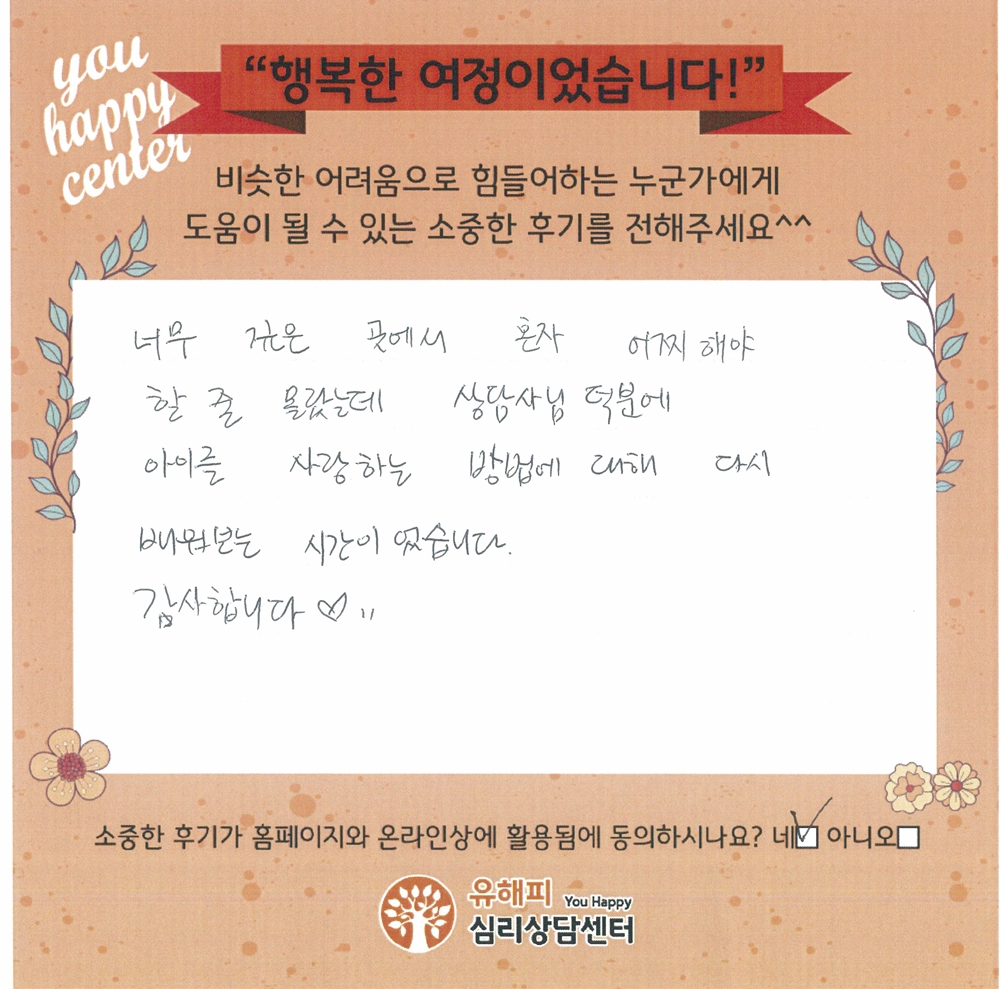 you
happy
center
“행복한 여정이었습니다!”
비슷한 어려움으로 힘들어하는 누군가에게
도움이 될 수 있는 소중한 후기를 전해주세요^^
너무 깊은 곳에서 혼자 어찌 해야
할 줄 몰랐는데 상담사님 덕분에
아이를 사랑하는 방법에 대해 다시
배워보는 시간이 였습니다.
감사합니다 ♡
소중한 후기가 홈페이지와 온라인상에 활용됨에 동의하시나요? 네☑ 아니오☐
유해피 You Happy
심리상담센터